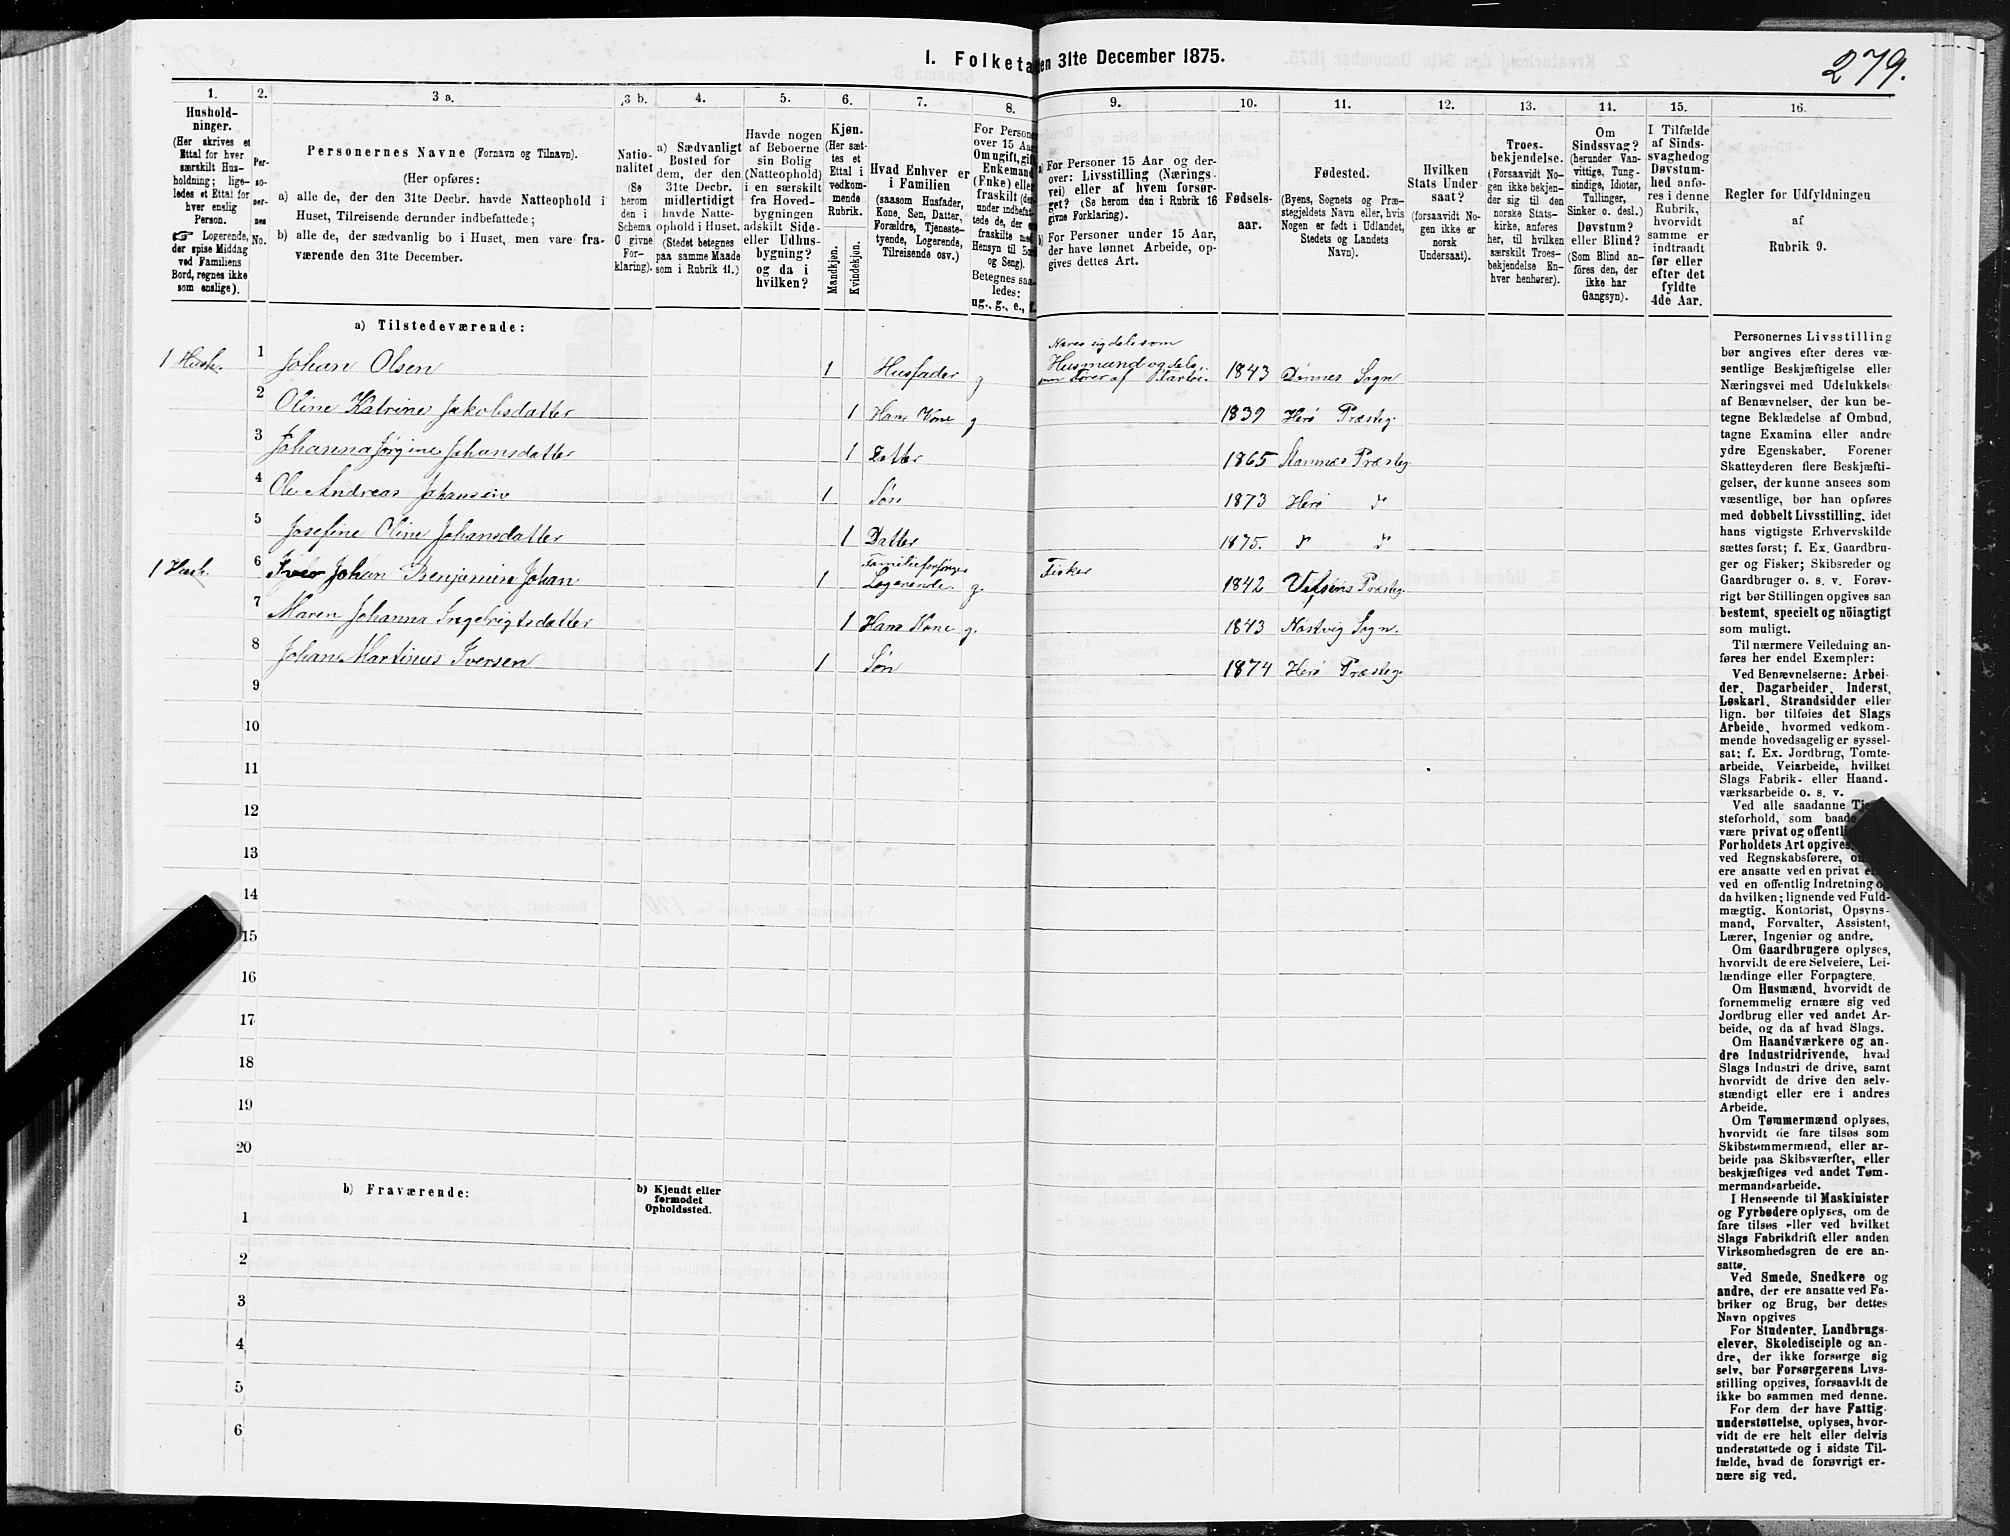 279.
I. Folketa en 31te December 1875.
1. 2. 3 a. 3 b. 4. 5. 6. 7. 8. 9. 10. 11. 12. 13. 14. 15. 16.
Hushold-
ninger.
(Her skrives et
Ettal for hver
særskilt Hus-
holdning; lige-
ledes et Ettal for
hver enslig
Person.
☞ Logerende,
der spise Middag
ved Familiens
Bord, regnes ikke
som enslige).
Per-
so-
ner-
nes
No.
Personernes Navne (Fornavn og Tilnavn).
(Her opføres:
a) alle de, der den 31te Decbr. havde Natteophold i
Huset, Tilreisende derunder indbefattede;
b) alle de, der sædvanlig bo i Huset, men vare fra-
værende den 31te December.
Natio-
nalitet
(Se
herom
den i
Schema
O givne
For-
klaring).
a) Sædvanligt
Bosted for
dem, der den
31te Decbr.
midlertidigt
havde Natte-
ophold i Huset.
(Stedet betegnes
paa samme Maade
som i Rubrik 11.)
Havde nogen
af Beboerne
sin Bolig
(Natteophold)
i en særskilt
fra Hoved-
bygningen
adskilt Side-
eller Udhus-
bygning?
og da i
hvilken?
Kjøn.
(Her sæt-
tes et
Ettal i
vedkom-
mende
Rubrik.
Mandkjøn.
Kvindekjøn.
Hvad Enhver er
i Familien
(saasom Husfader,
Kone, Søn, Datter,
Forældre, Tjeneste-
tyende, Logerende,
Tilreisende osv.)
For Persone
over 15 Aar
Om ugift, gift
Enkemand
(Enke) elle
fraskilt (der
under indbefat-
tede de, der e
fraskilte med
Hensyn til Bord
og Seng).
Betegnes saa-
ledes:
ug., g., e., f.
a) For Personer 15 Aar og der-
over: Livsstilling (Nærings-
vei) eller af hvem forsør-
get? (Se herom den i Rubrik 16
givne Forklaring).
b) For Personer under 15 Aar,
der have lønnet Arbeide, op-
gives dettes Art.
Fødsels-
aar.
Fødested.
(Byens, Sognets og Præ-
stegjeldets Navn eller, hvis
Nogen er født i Udlandet,
Stedets og Landets
Navn).
Hvilken
Stats Under-
saat?
(forsaavidt No-
gen ikke er
norsk
Undersaat).
Troes-
bekjendelse.
(Forsaavidt No-
gen ikke bekjen-
der sig til den
norske Stats-
kirke, anføres
her, til hvilken
særskilt Troes-
bekjendelse En-
hver henhører).
Om
Sindssvag?
(herunder Van-
vittige, Tung-
sindige, Idioter,
Tullinger,
Sinker o. desl.)
Døvstum?
eller Blind?
(Som Blind an-
føres den, der
ikke har
Gangsyn).
I Tilfælde
af Sinds-
svaghed og
Døvstum-
hed anfø-
res i denne
Rubrik,
hvorvidt
samme er
indtraadt
før eller
efter det
fyldte
4de Aar.
Regler for Udfyldningen
af
Rubrik 9.
a) Tilstedeværende:
1 Hush. 1 Johan Olsen 1 Husfader g Husmand og dels 1843 Dønnes Sogn
2 Oline Katrine Jakobsdatter 1 Hans Kone g 1839 Herø Præsteg.
3 Johanna Jørgine Johansdatter 1 Datter 1865 Stamnæs Præsteg.
4 Ole Andreas Johansen 1 Søn 1873 Herø d
5 Josefine Oline Johansdatter 1 Datter 1875. d d
1 Hush. 6 Iver Johan Benjamin Johan 1 Familieforsørger Logerende g. Fisker 1842 Vefsens Præsteg.
7 Maren Johanna Ingebrigtsdatter 1 Hans Kone g. 1843 Næstvig Sogn.
8 Johan Martinus Iversen 1 Søn 1874 Herø Præsteg.
9
10
11
12
13
14
15
16
17
18
19
20
b) Fraværende:
b) Kjendt eller
formodet
Opholdssted.
1
2
3
4
5
6
Personernes Livsstilling
bør angives efter deres væ-
sentlige Beskjæftigelse eller
Næringsvei med Udelukkelse
af Benævnelser, der kun be-
tegne Beklædelse af Ombud,
tagne Examina eller andre
ydre Egenskaber. Forener
Skatteyderen flere Beskjæfti-
gelser, der kunne ansees som
væsentlige, bør han opføres
med dobbelt Livsstilling, idet
hans vigtigste Erhvervskilde
sættes først; f. Ex. Gaardbru-
ger og Fisker; Skibsreder og
Gaardbruger o. s. v. Forøv-
rigt bør Stillingen opgives saa
bestemt, specielt og nöiagtigt
som muligt.
Til nærmere Veiledning an-
føres her endel Exempler:
Ved Benævnelserne: Arbei-
der, Dagarbeider, Inderst,
Løskarl, Strandsidder eller
lign. bør tilføies det Slags
Arbeide, hvormed vedkom-
mende hovedsagelig er syssel-
sat; f. Ex. Jordbrug, Tomte-
arbeide, Veiarbeide, hvilket
Slags Fabrik- eller Haand-
værksarbeide o. s. v.
Ved alle saadanne Tje
steforhold, som baade
være privat og offentli
Forholdets Art opgives,
ved Regnskabsførere, o
ere ansatte ved en privat e
ved en offentlig Indretning o
da hvilken; lignende ved Fuld-
mægtig, Kontorist, Opsyns-
mand, Forvalter, Assistent,
Lærer, Ingeniør og andre.
Om Gaardbrugere oplyses,
hvorvidt de ere Selveiere, Lei-
lændinge eller Forpagtere.
Om Husmænd, hvorvidt de
fornemmelig ernære sig ved
Jordbrug eller ved andet Ar-
beide, og da af hvad Slags.
Om Haandværkere og an-
dre Industridrivende, hvad
Slags Industri de drive, samt
hvorvidt de drive den selv-
stændigt eller ere i andres
Arbeide.
Om Tømmermænd oplyses,
hvorvidt de fare tilsøs som
Skibstømmermænd, eller ar-
beide paa Skibsværfter, eller
beskjæftiges ved andet Tøm-
mermandsarbeide.
I Henseende til Maskinister
og Fyrbødere oplyses, om de
fare tilsøs eller ved hvilket
Slags Fabrikdrift eller anden
Virksomhedsgren de ere an-
satte.
Ved Smede, Snedkere og
andre, der ere ansatte ved Fa-
briker og Brug, bør dettes
Navn opgives
For Studenter, Landbrugs-
elever, Skoledisciple og an-
dre, der ikke forsørge sig
selv, bør Forsørgerens Livs-
stilling opgives, forsaavidt de
ikke bo sammen med denne.
For dem, der have Fattig-
understøttelse, oplyses, hvor-
vidt de ere helt eller delvis
understøttede og i sidste Til-
fælde, hvad de forøvrigt er-
nære sig ved.